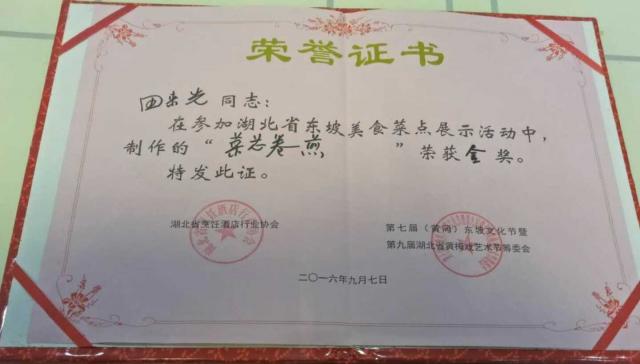 荣誉证书
田东光 同志：
在参加湖北省东坡美食菜点展示活动中，
制作的“菜芯卷煎”荣获金奖。
特发此证。
湖北省烹饪酒店行业协会
第七届（黄冈）东坡文化节暨
第九届湖北省黄梅戏艺术节筹委会
二〇一六年九月七日